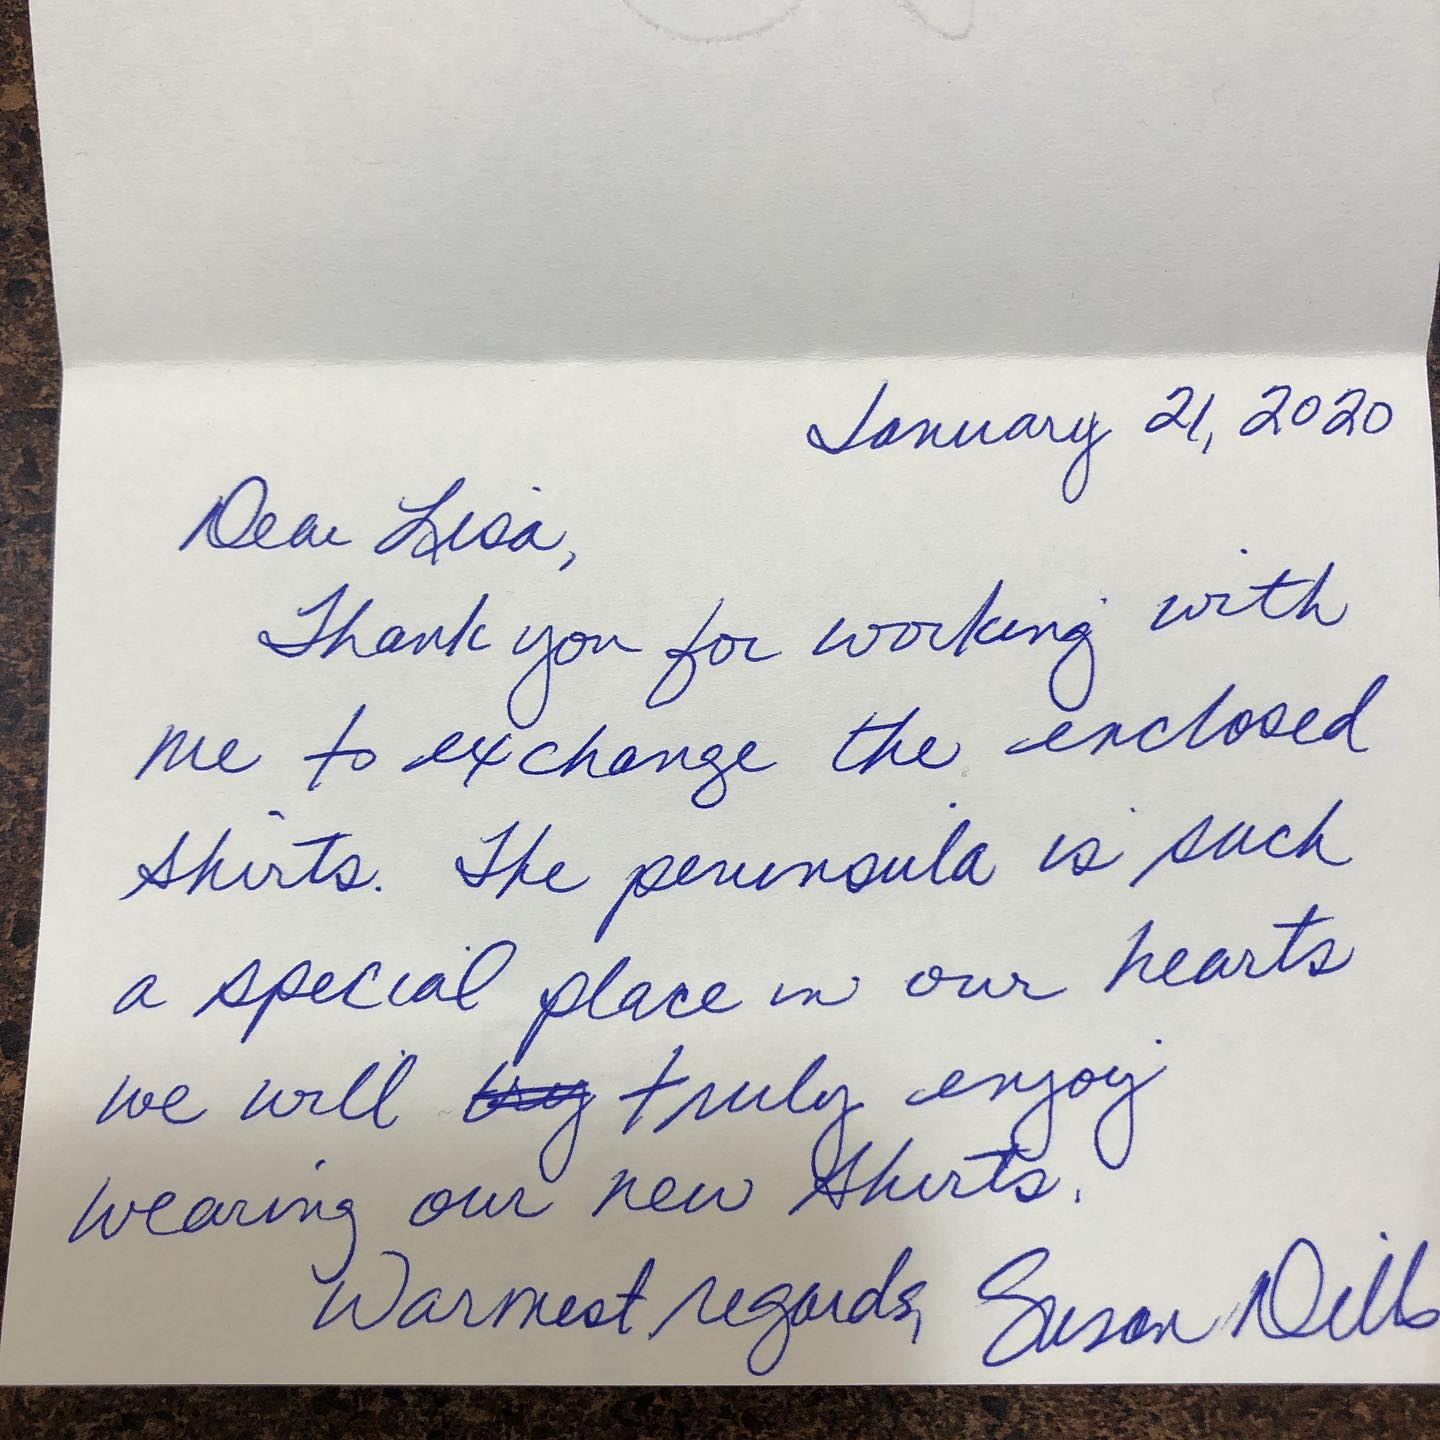 January 21, 2020
Dear Lisa,
Thank you for working with
me to exchange the enclosed
shirts. The peninsula is such
a special place in our hearts
we will try truly enjoy
wearing our new shirts.
Warmest regards, Susan Dills